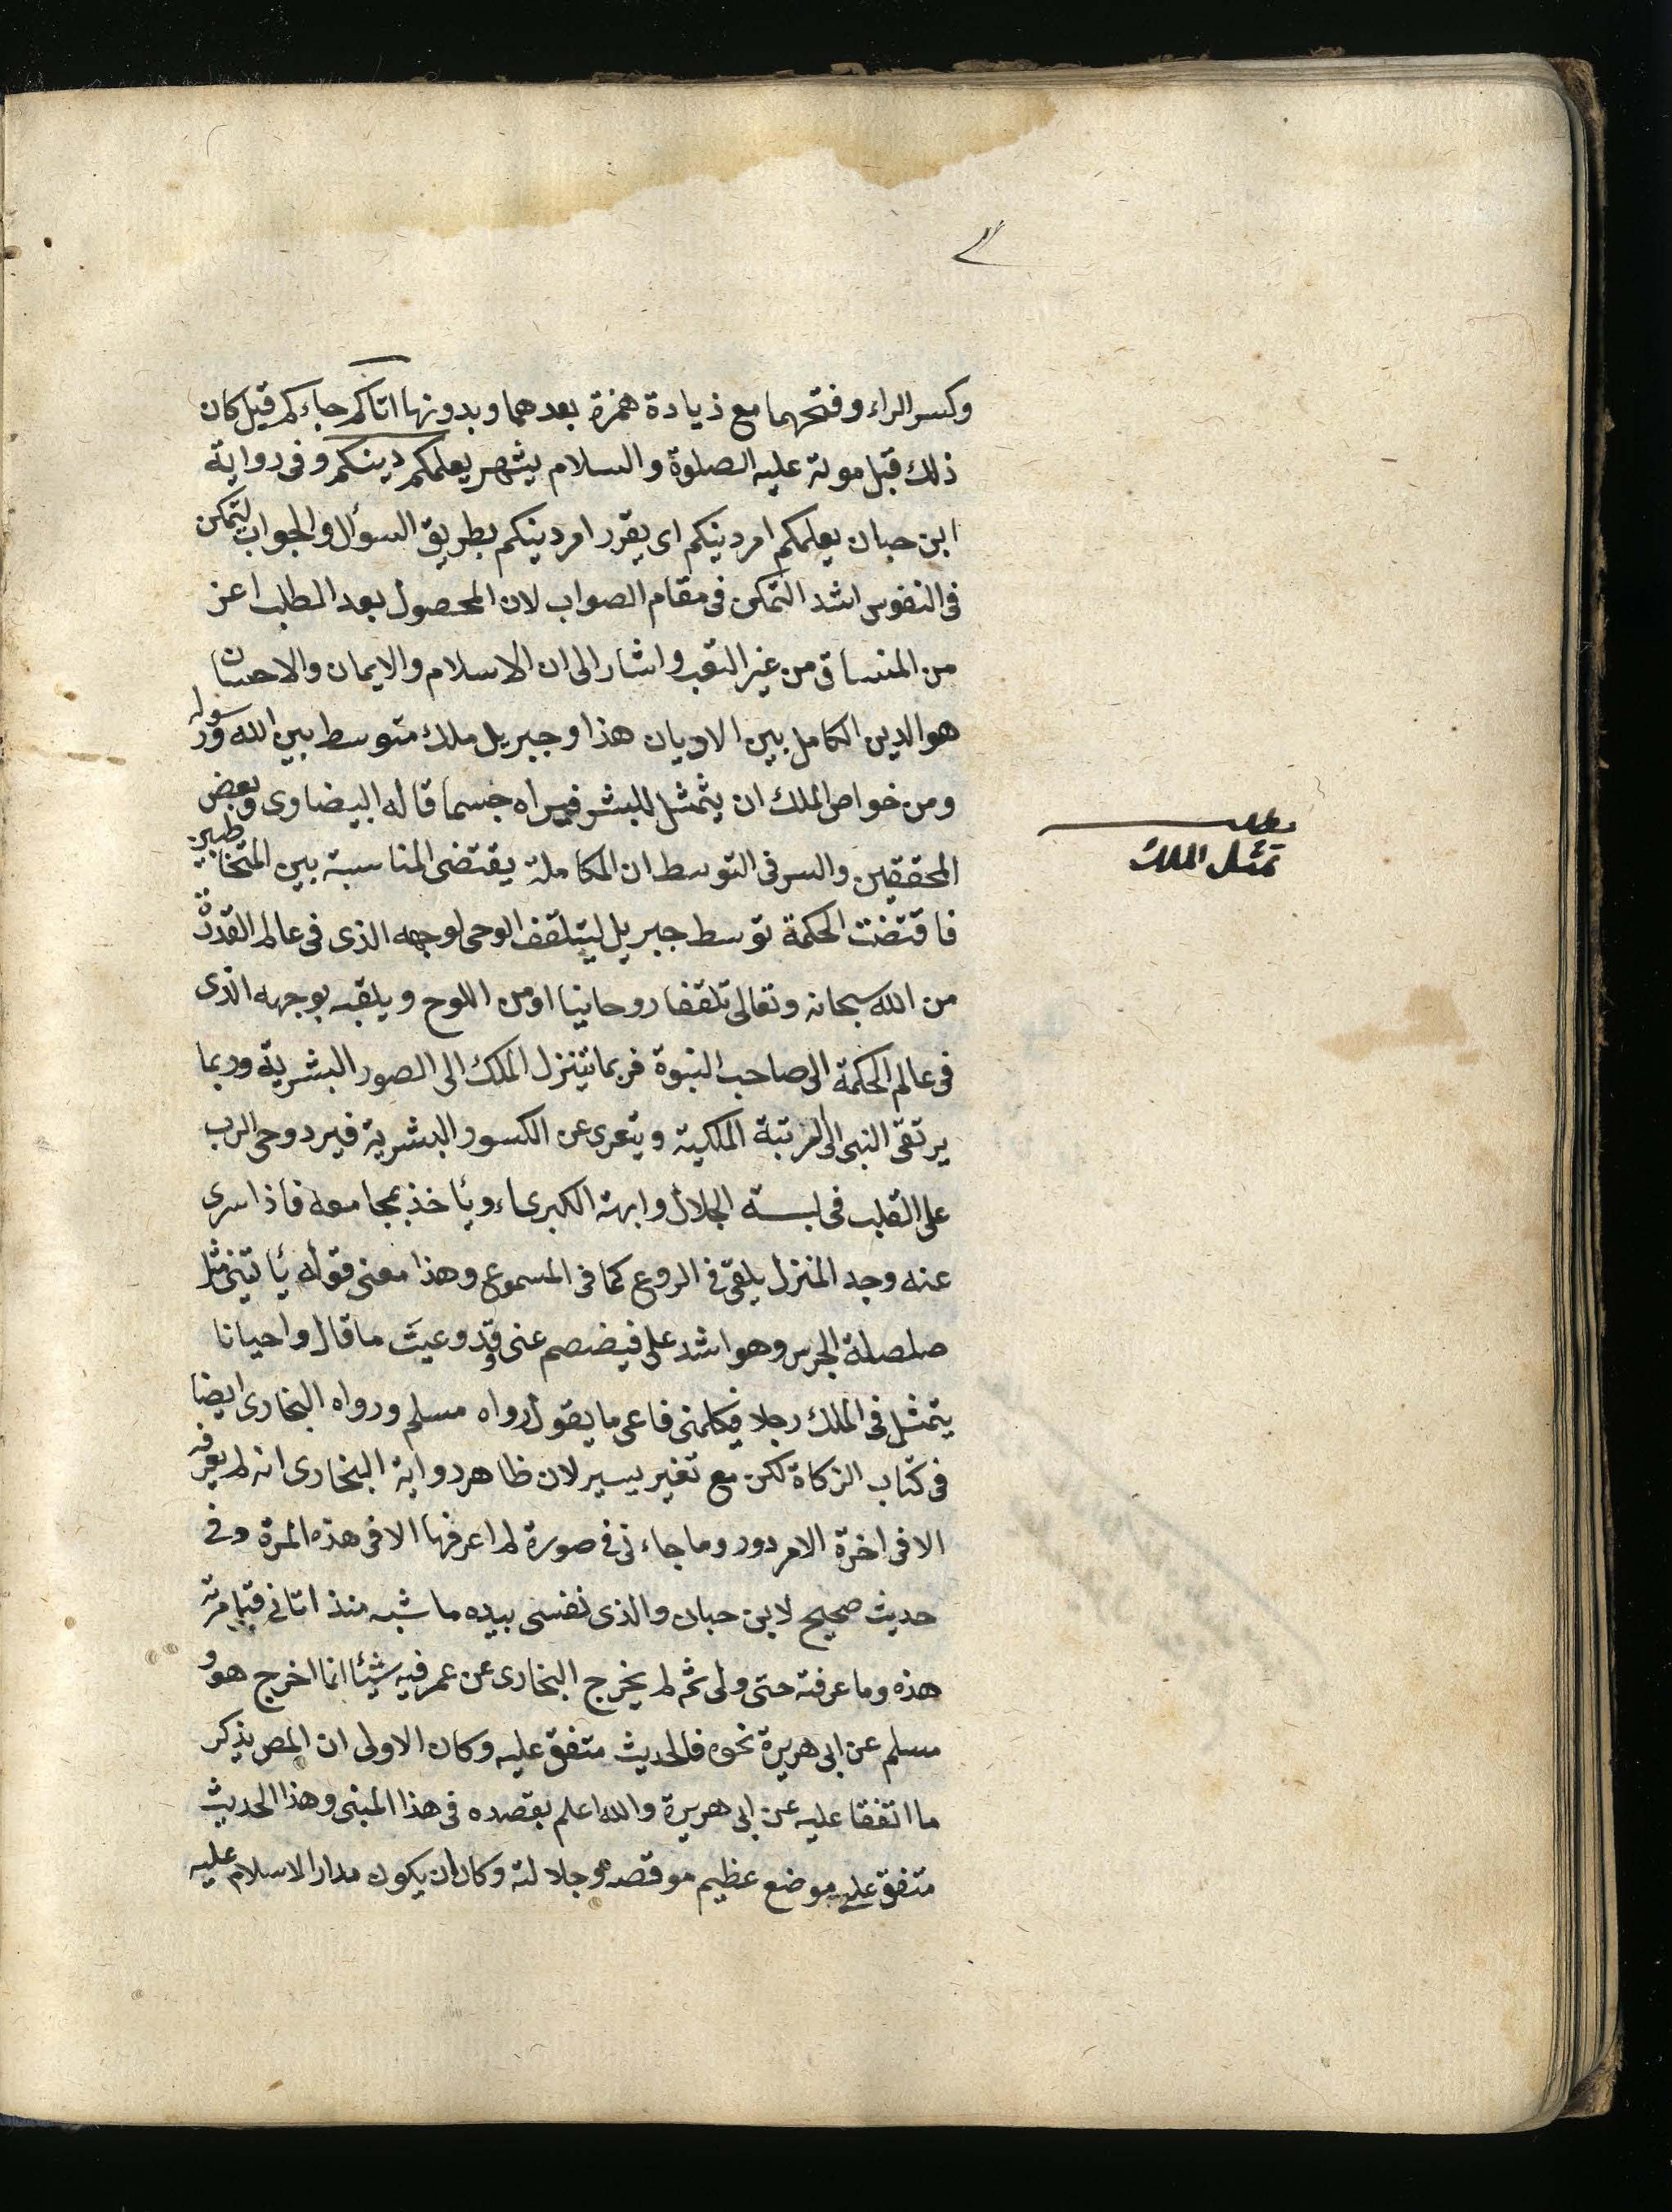 وكسر الراء وفتحهما مع ذيادة همزة بعدهما وبدونها اتاكم جاءكم قيل كان
ذلك قبل موته عليه الصلوة والسلام بشهر يعلمكم دينكم وفى رواية
ابن حبان يعلمكم امر دينكم اى يقرر امر دينكم بطريق السوأل والجواب ليتمكن
فى النفوس اشد التمكن فى مقام الصواب لان المحصول بعد الطلب اعز
من المنساق من غير التعب واشار الى ان الاسلام والايمان والاحسان
هو الدين الكامل بين الاديان هذا وجبريل ملك متوسط بين الله ورسوله
ومن خواص الملك ان يتمثل للبشر فيراه جسما قاله البيضاوى وبعض
المحققين والسر فى التوسط ان المكاملة يقتضى المناسبة بين المتخاطبين
فاقتضت الحكمة توسط جبريل ليتلقف الوحى لوجهه الذى فى عالم القدرة
من الله سبحانه وتعالى تلقفا روحانيا اومن اللوح ويلقبه بوجهه الذى
فى عالم الحكمة الى صاحب النبوة فربما يتنزل الملك الى الصور البشرية وربما
يرتقى النبى الى المرتبة الملكية ويتعرى عن الكسور البشرية فيرد وحى الرب
على القلب فى لبسة الجلال وابهة الكبرياء ويأخذ بمجامعه فاذا سرى
عنه وجد المنزل يلقى فى الروع كما فى المسموع وهذا معنى قوله يأتينى مثل
صلصلة الجرس وهو اشد على فيفصم عنى وقد وعيت ما قال واحيانا
يتمثل فى الملك رجلا فيكلمنى فاعى ما يقول رواه مسلم ورواه البخارى ايضا
فى كتاب الزكاة لكن مع تغير يسير لان ظاهر دواية البخارى انه لم يعرفه
الا فى اخرة الامر دود وما جاءنى فى صورة لم اعرفها الا فى هذه المرة وفى
حديث صحيح لابن حبان والذى نفسى بيده ما شبه منذ اتانى قبل مرته
هذه وما عرفته حتى ولى ثم لم يخرج البخارى عن عمر فيه شيئا انما اخرج هو و
مسلم عن ابى هريرة نحوه فالحديث متفق عليه وكان الاولى ان المص يذكر
ما اتفقا عليه عن ابى هريرة والله اعلم بقصده فى هذا المبنى وهذا الحديث
متفق على موضع عظيم موقعه وجلالته وكاد ان يكون مدار الاسلام عليه
مطلب
تمثل الملك